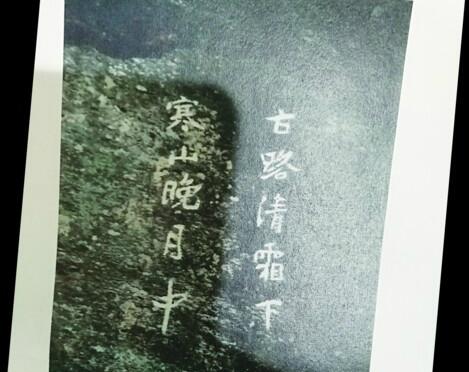 古路清霜下
寒山晚月中